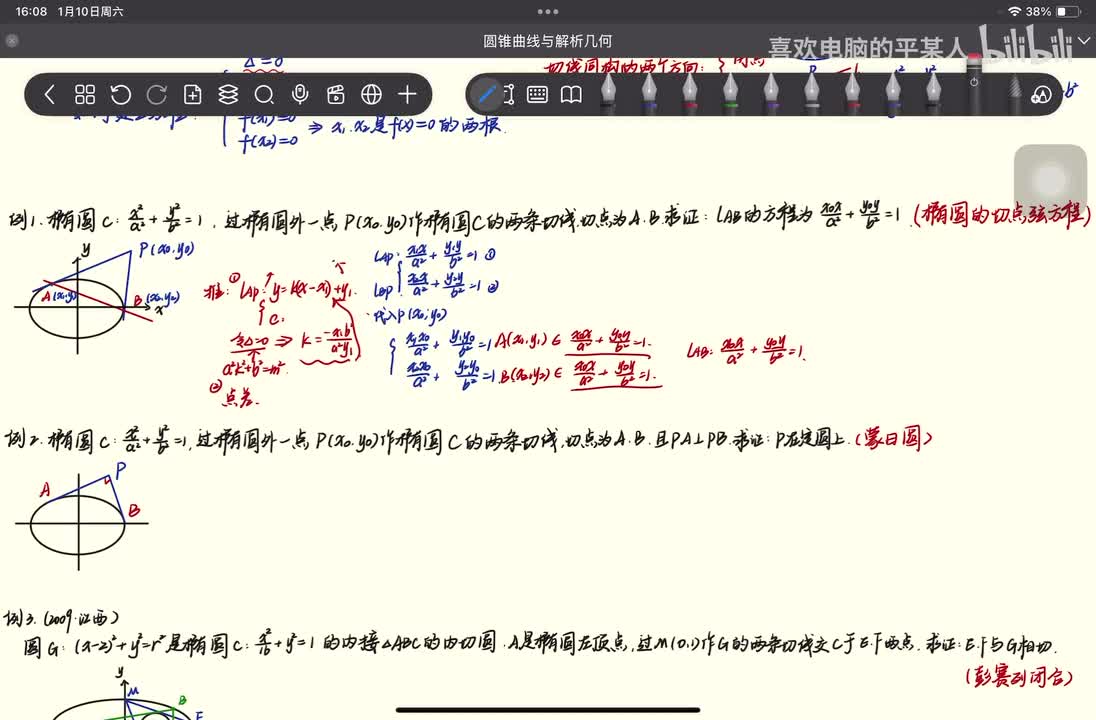 16:08 1月10日周六
38%
圆锥曲线与解析几何
喜欢电脑的平某人 bilibili
Δ=0
f(x₁)=0
f(x₂)=0 ⇒ x₁.x₂是f(x)=0的两根.
例1.椭圆C: x²/a²+y²/b²=1,过椭圆外一点P(x₀,y₀)作椭圆C的两条切线,切点为A.B.求证:lAB的方程为 x₀x/a²+y₀y/b²=1.(椭圆的切点弦方程)
y
P(x₀,y₀)
A(x₁,y₁)
B(x₂,y₂)
x
① lAP: y=k(x-x₁)+y₁
C.
令Δ=0 ⇒ k=-x₁b²/a²y₁
a²k²+b²=m².
② 点差.
lAP: x₁x/a²+y₁y/b²=1 ①
lBP: x₂x/a²+y₂y/b²=1 ②
代入P(x₀,y₀)
x₁x₀/a²+y₁y₀/b²=1 A(x₁,y₁)∈ x₀x/a²+y₀y/b²=1.
x₂x₀/a²+y₂y₀/b²=1 B(x₂,y₂)∈ x₀x/a²+y₀y/b²=1.
lAB: x₀x/a²+y₀y/b²=1.
例2.椭圆C: x²/a²+y²/b²=1,过椭圆外一点P(x₀,y₀)作椭圆C的两条切线,切点为A.B.且PA⊥PB.求证:P在定圆上.(蒙日圆)
A
P
B
例3.(2009·江西)
圆G:(x-2)²+y²=r²是椭圆C: x²/16+y²=1的内接△ABC的内切圆.A是椭圆左顶点,过M(0,1)作G的两条切线交C于E.F两点.求证:E.F与G相切.
(彭赛列闭合)
y
M
B
F